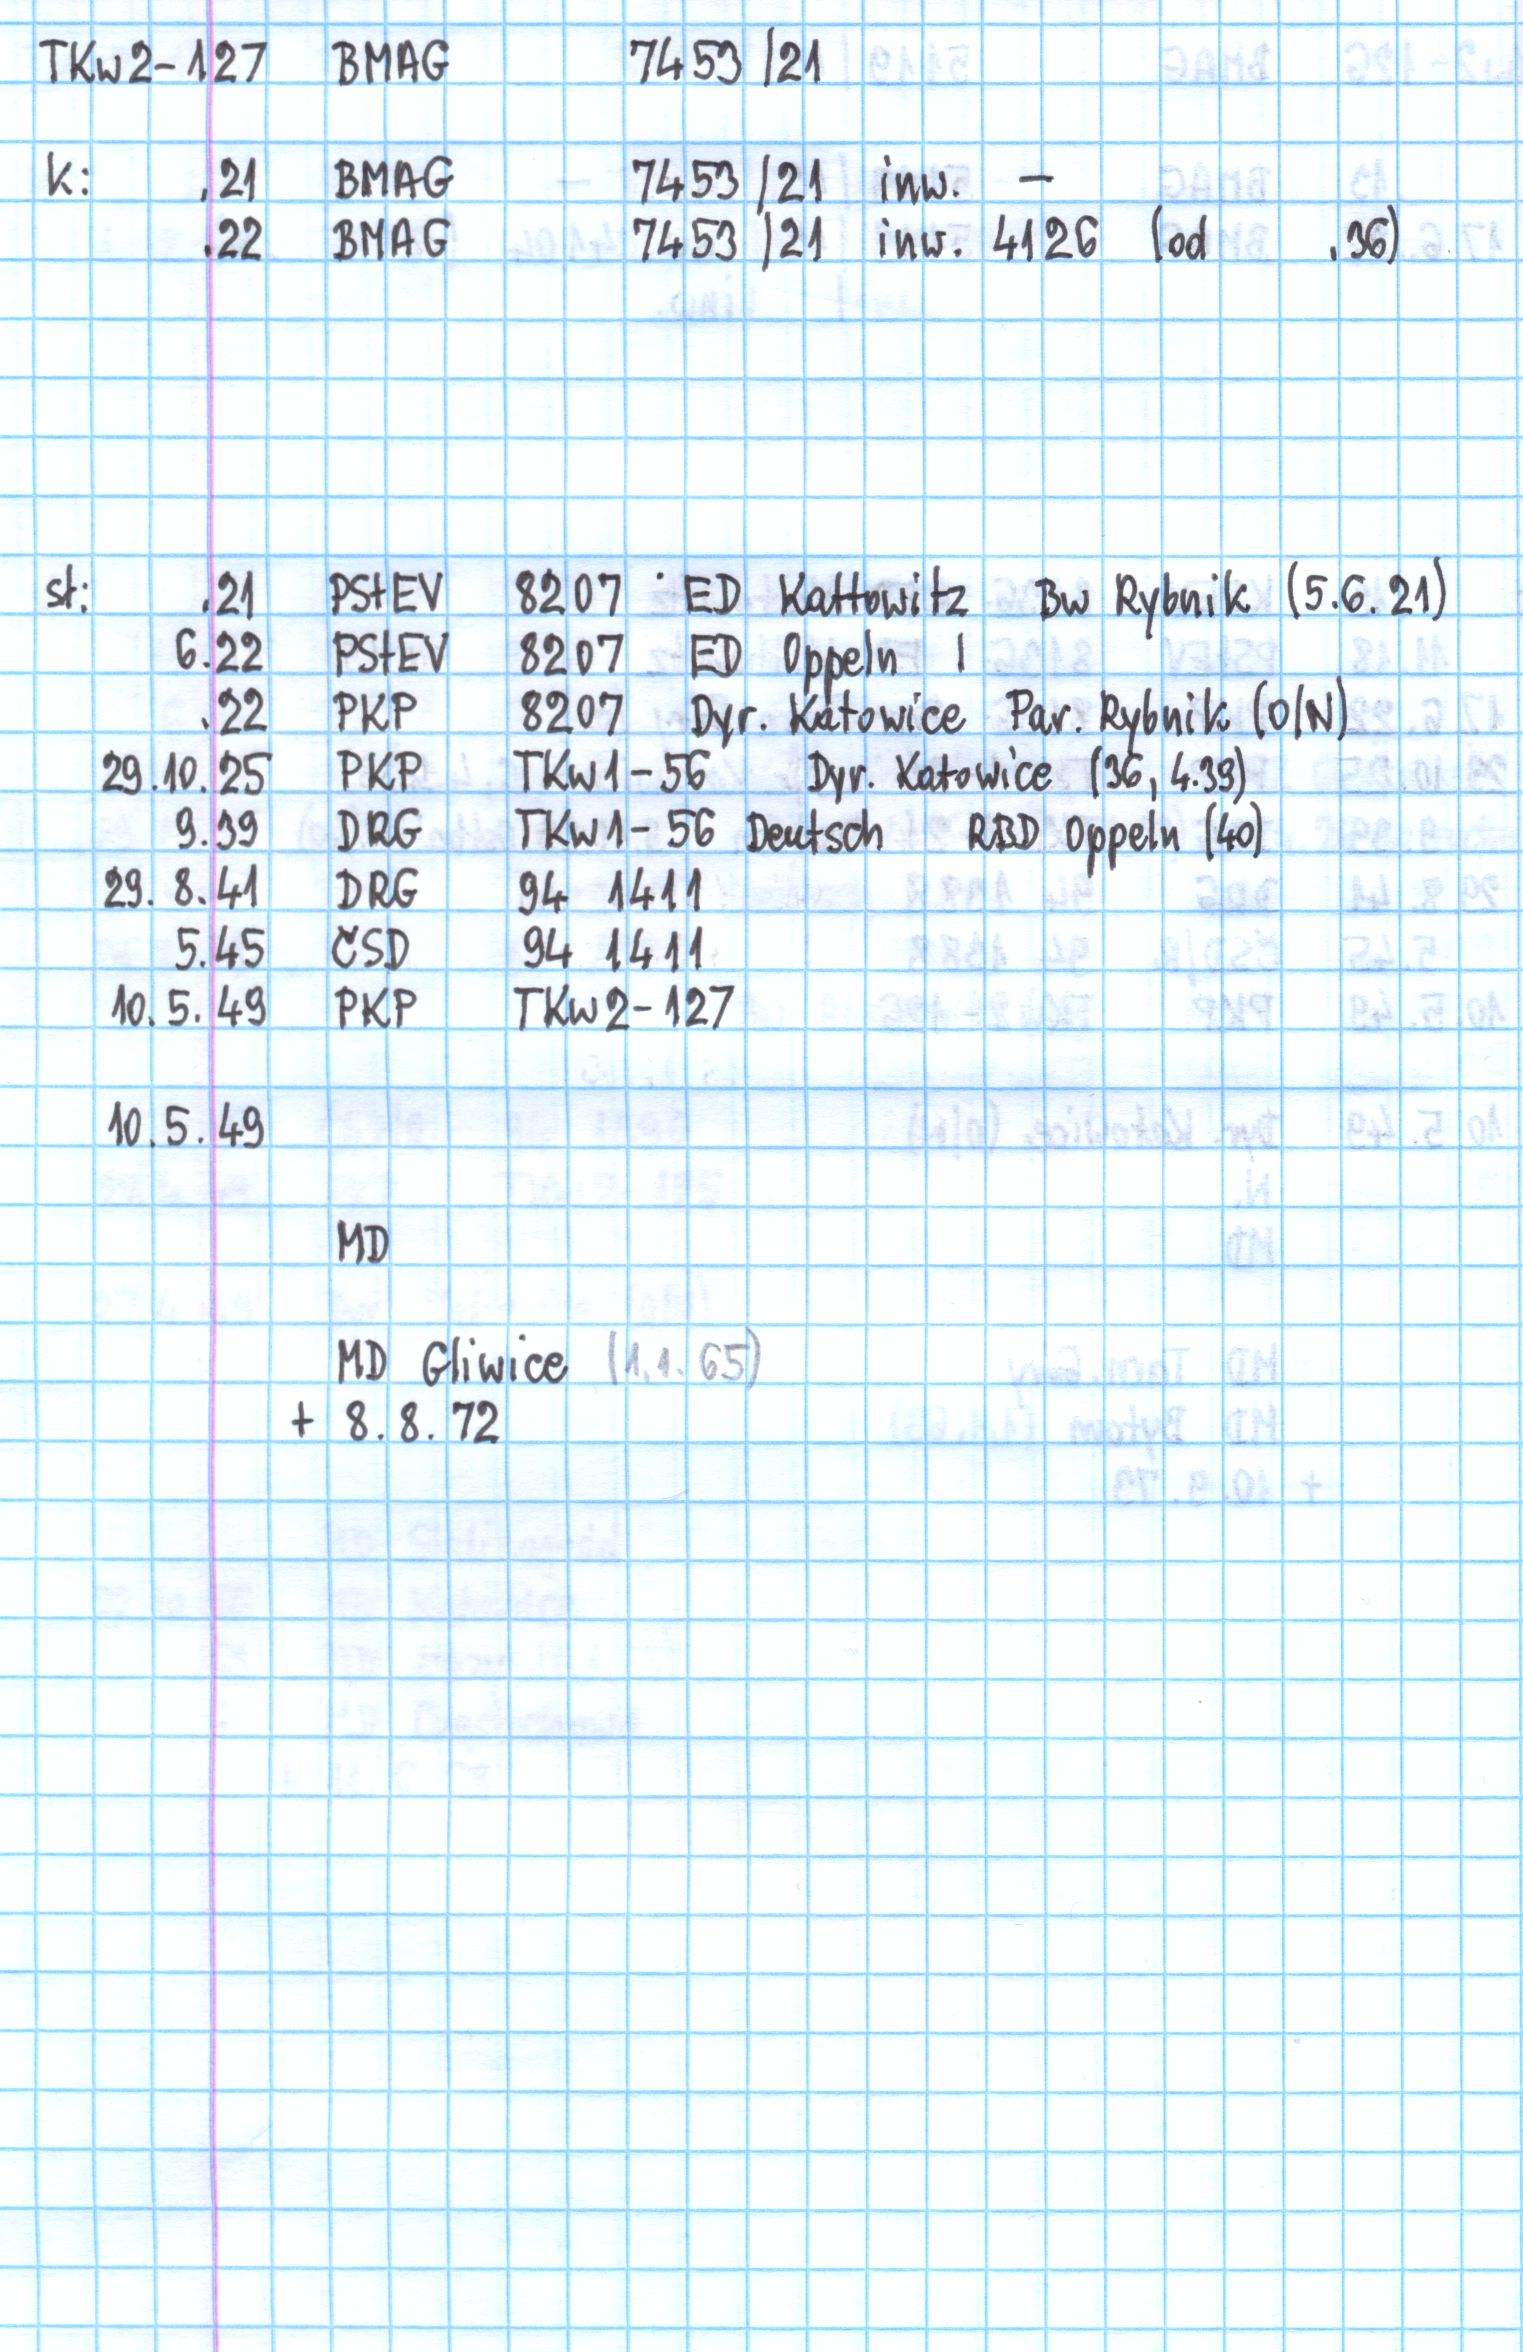 TKw2-127 BMAG 7453/21
k: .21 BMAG 7453/21 inw. –
.22 BMAG 7453/21 inw. 4126 (od .36)
st: .21 PStEV 8207 ED Kattowitz Bw Rybnik (5.6.21)
6.22 PStEV 8207 ED Oppeln 1
.22 PKP 8207 Dyr. Katowice Par. Rybnik (O/N)
29.10.25 PKP TKw1-56 Dyr. Katowice (36, 4.39)
9.39 DRG TKw1-56 Deutsch RBD Oppeln (40)
29.8.41 DRG 94 1411
5.45 ČSD 94 1411
10.5.49 PKP TKw2-127
10.5.49
MD
MD Gliwice (1.1.65)
+ 8.8.72